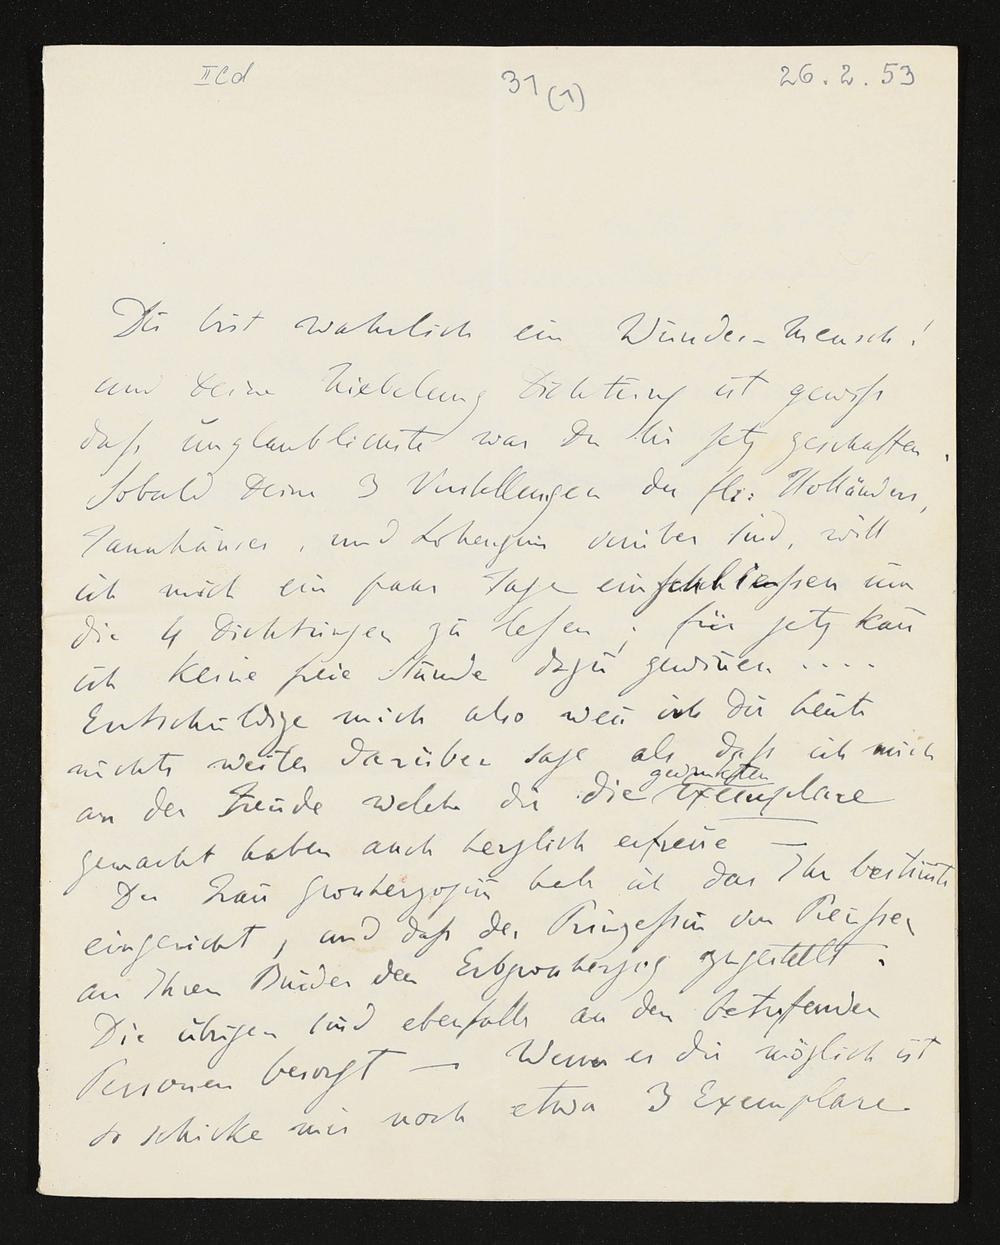 II C d
31 (1)
26.2.53
Du bist wahrlich ein Wunder-Mensch!
und Deine Niebelung Dichtung ist gewiß
daß unglaublichste was Du bis jetz geschaffen.
Sobald Deine 3 Vorstellungen der fli: Holländers,
Tannhäuser, und Lohengrin vorüber sind, will
ich mich ein paar Tage einschließen um
die 4 Dichtungen zu lesen; für jetz kan̄
ich keine freie Stunde dazu gewin̄en ....
Entschuldige mich also wen̄ ich Dir heute
nichts weiter darüber sage als daß ich mich
an der Freude welche dir die gedruckten Exemplare
gemacht haben auch herzlich erfreue —
Der Frau Grosherzogin habe ich das Ihr bestim̄te
eingereicht, und daß der Prinzeßin von Preußen
an Ihren Bruder den Erbgrosherzog zugestellt:
Die übrigen sind ebenfalls an den betrefenden
Personen besorgt — Wenn es dir möglich ist
so schicke mir noch etwa 3 Exemplare.